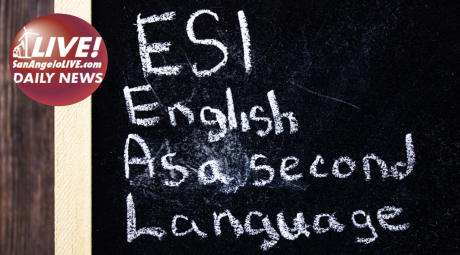 LIVE!
SanAngeloLIVE.com
DAILY NEWS
ESl
English
As a second
Language